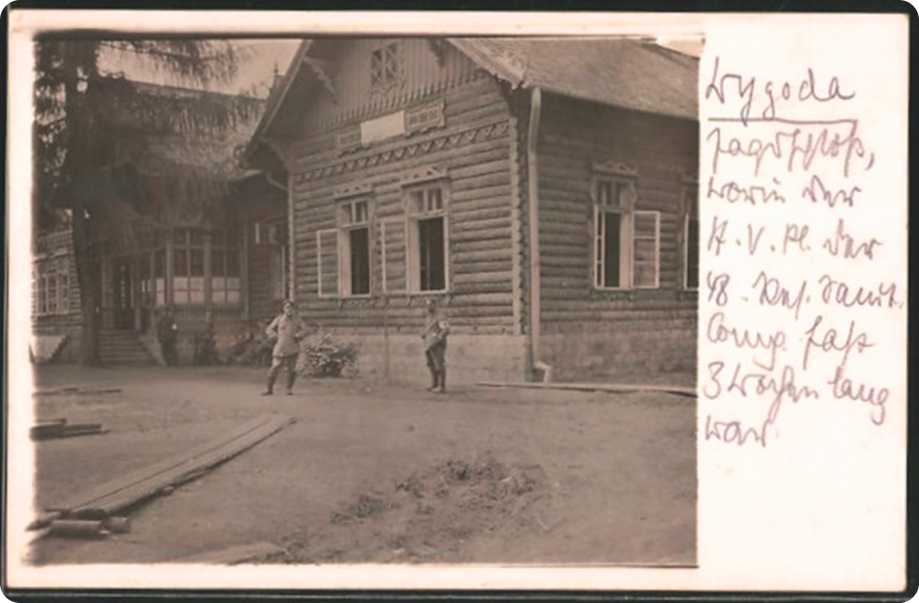 Wygoda
Jagdschloß,
worin der
H.V.Pl. der
48. Res. Sanit.
Comp. fast
3 Wochen lang
war.